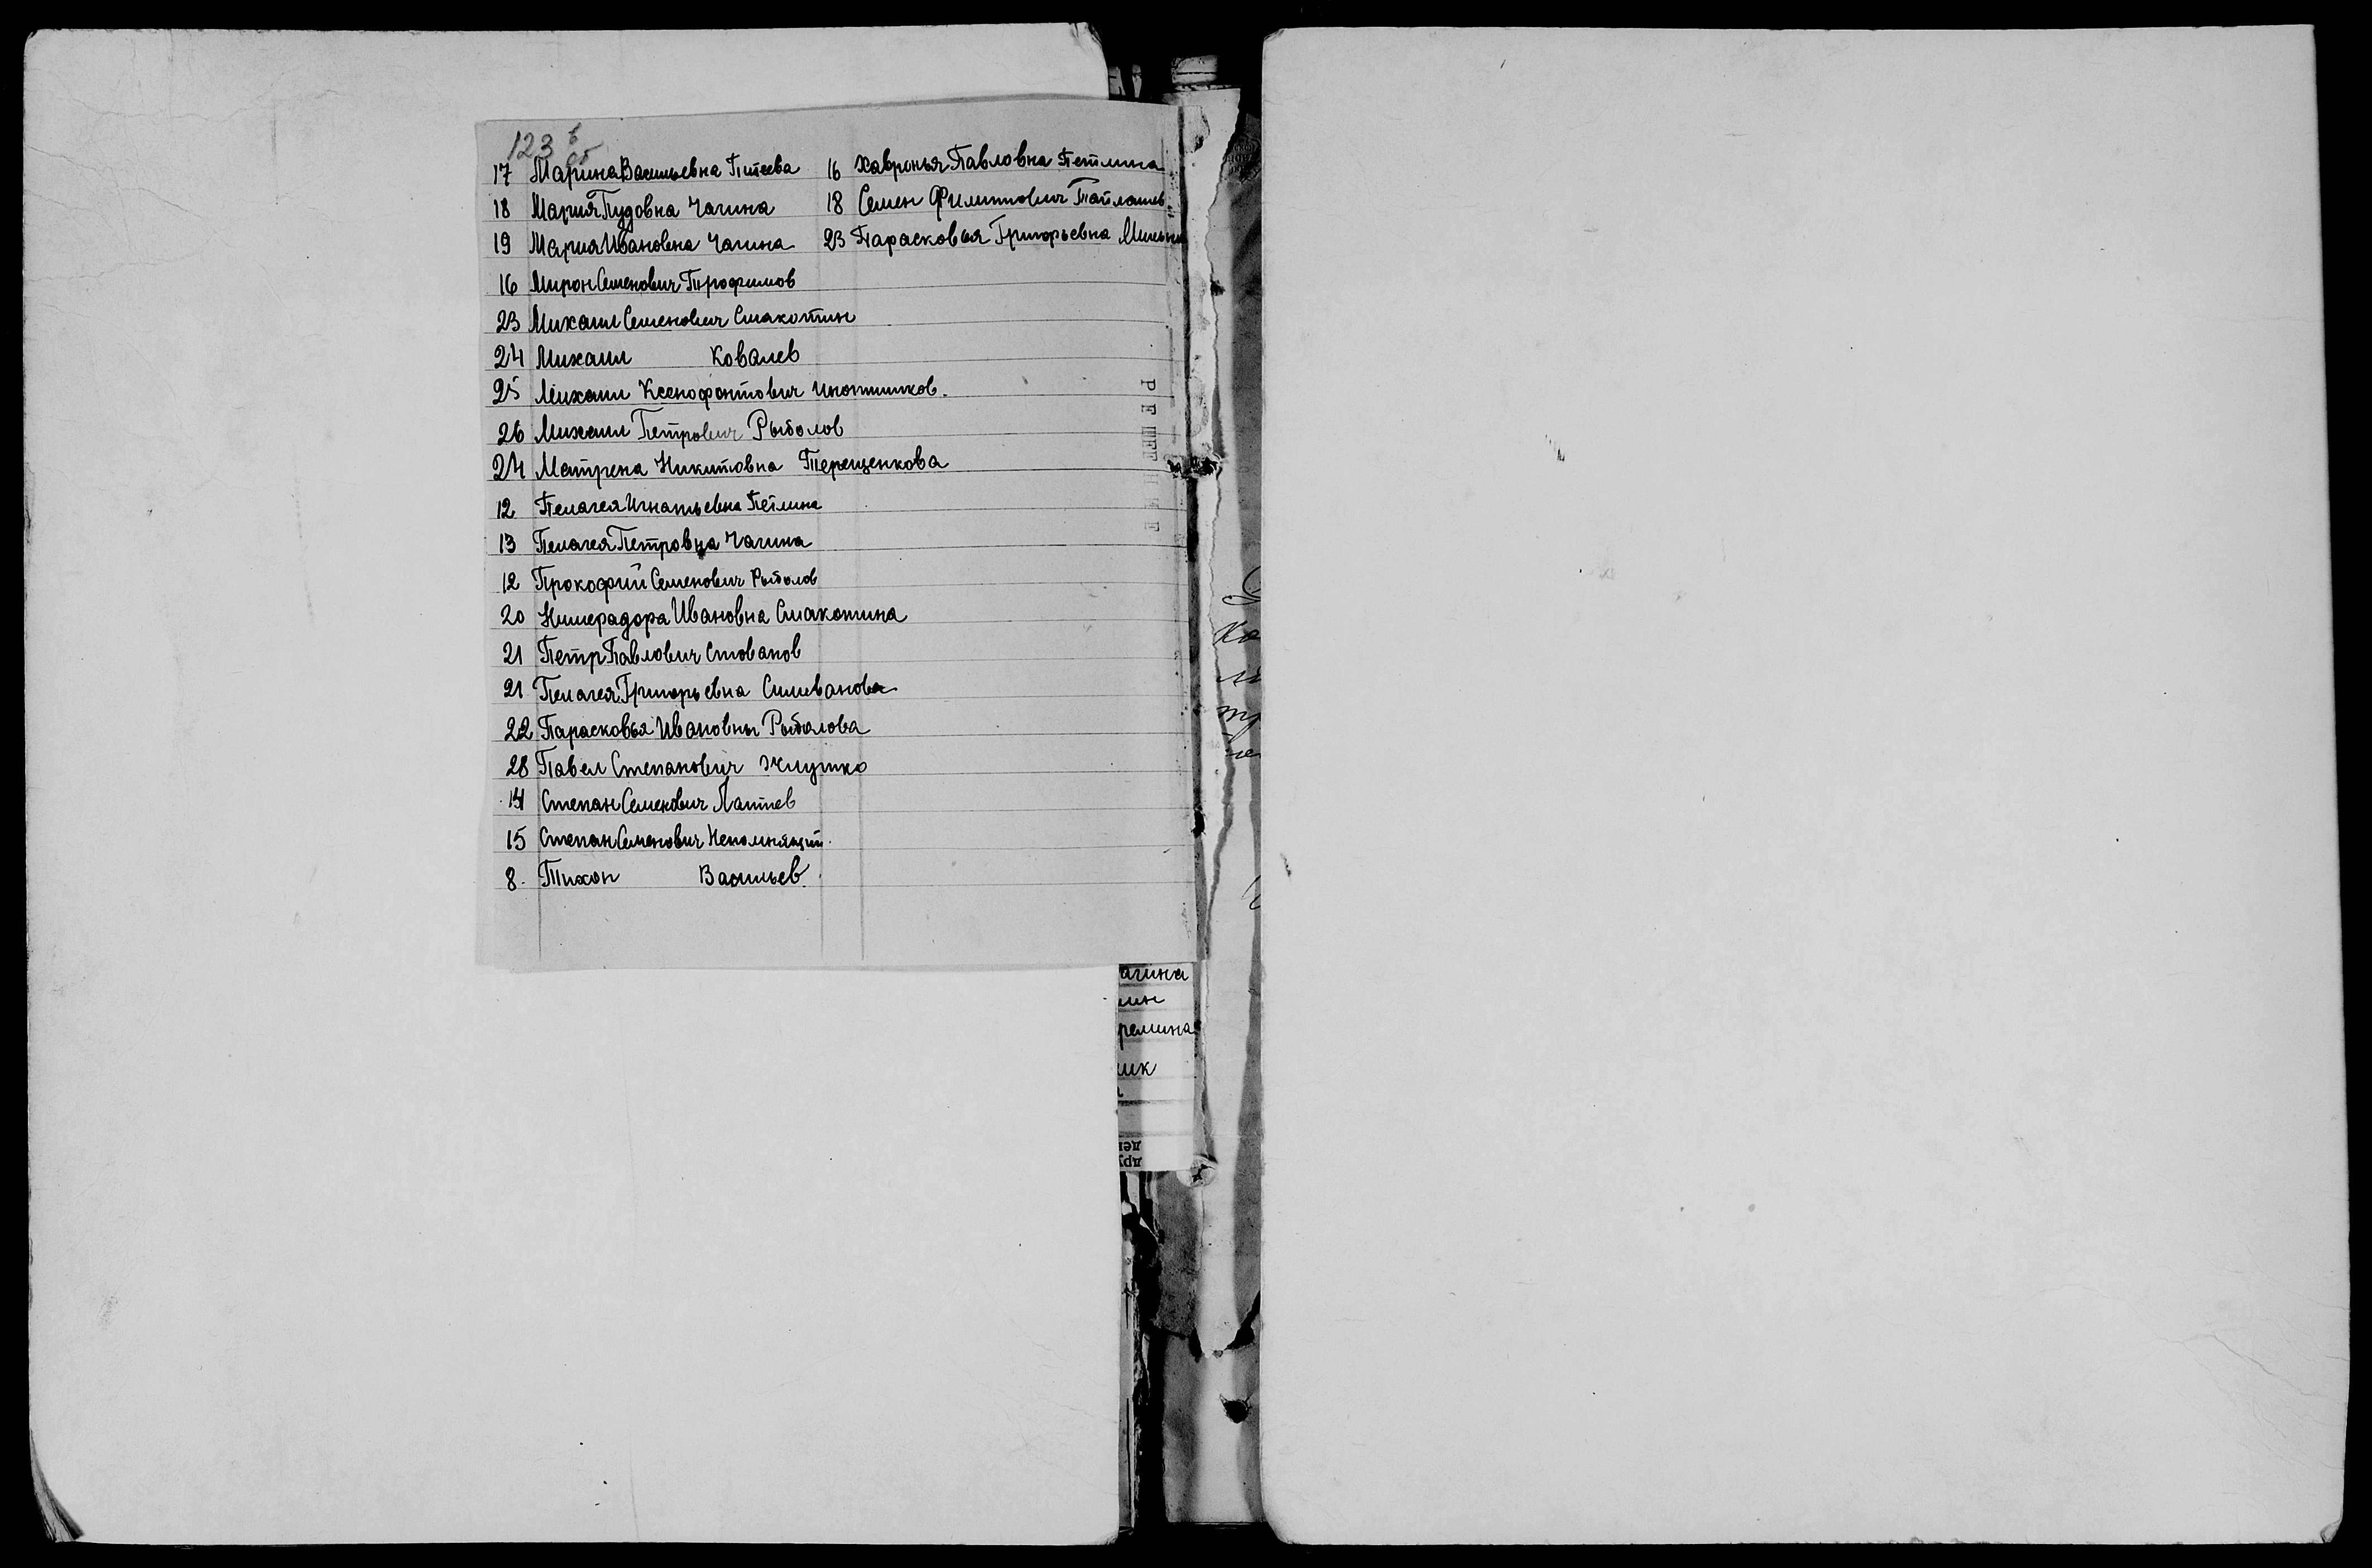 123 в
об
17 Марина Васильевна Питеева 16 Хавронья Павловна Петлина
18 Мария Пудовна Чагина 18 Семен Филиппович Тайлашев.
19 Мария Ивановна Чагина 23 Парасковья Григорьевна
16 Мирон Семенович Трофимов
23 Михаил Семенович Смакотин
24 Михаил Ковалев
25 Михаил Ксенофонтович
26 Михаил Петрович Рыболов
24 Матрена Никитовна Терещенкова
12 Пелагея Игнатьевна Петлина
13 Пелагея Петровна Чагина
12 Прокофий Семенович Рыболов
20 Ивановна Смакотина
21 Петр Павлович
21 Пелагея Григорьевна Силиванова
22 Парасковья Ивановны Рыболова
28 Павел Степанович
14 Степан Семенович Лаптев
15 Степан Семенович Непомнящий.
8. Тихон Васильев.
агина
ин
ремина
ик